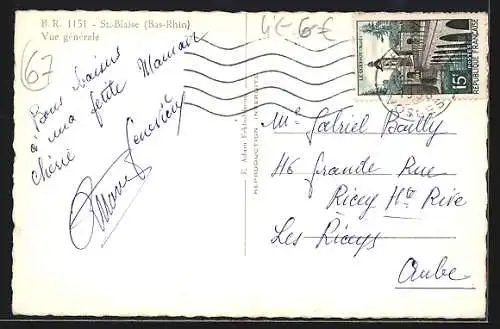 B. R. 1151 - St-Blaise (Bas-Rhin)
Vue générale
67
4€ 6€
Bons baisers
à ma petite Maman
chérie
Geneviève
E. Adam
REPRODUCTION INTERDITE
LE QUESNOY
15F
POSTES
REPUBLIQUE FRANÇAISE
Me Gabriel Bailly
46 Grande Rue
Ricey Hte Rive
Les Riceys
Aube